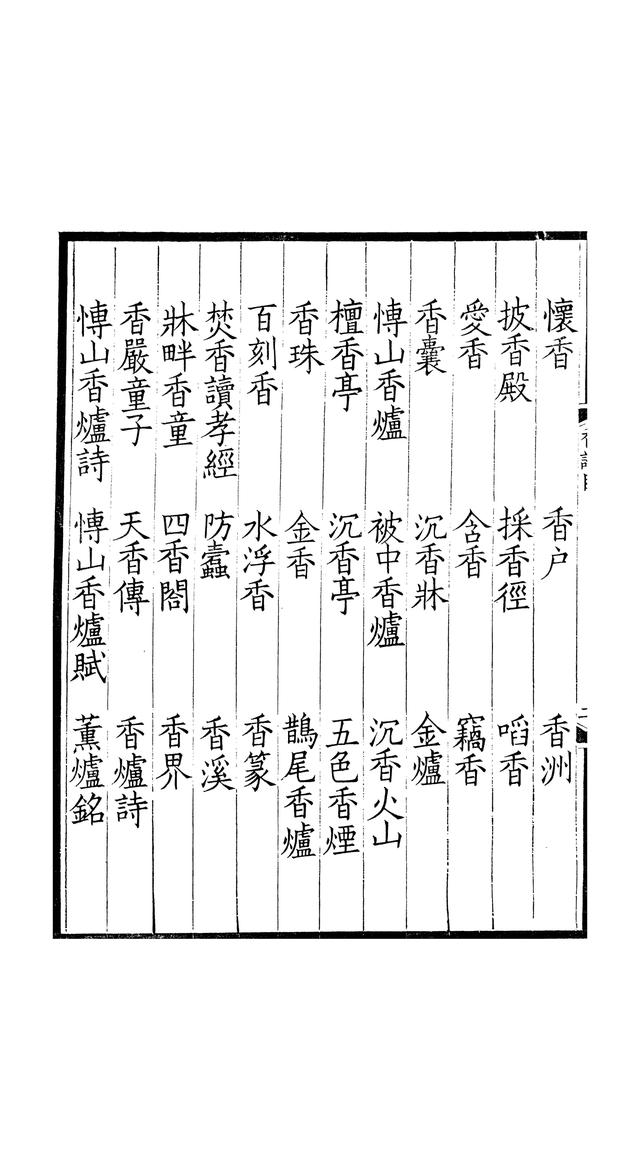 懷香　香户　香洲
披香殿　採香徑　啗香
愛香　含香　竊香
香囊　沉香牀　金爐
愽山香爐　被中香爐　沉香火山
檀香亭　沉香亭　五色香煙
香珠　金香　鵲尾香爐
百刻香　水浮香　香篆
焚香讀孝經　防蠹　香溪
牀畔香童　四香閣　香界
香嚴童子　天香傳　香爐詩
愽山香爐詩　愽山香爐賦　薰爐銘